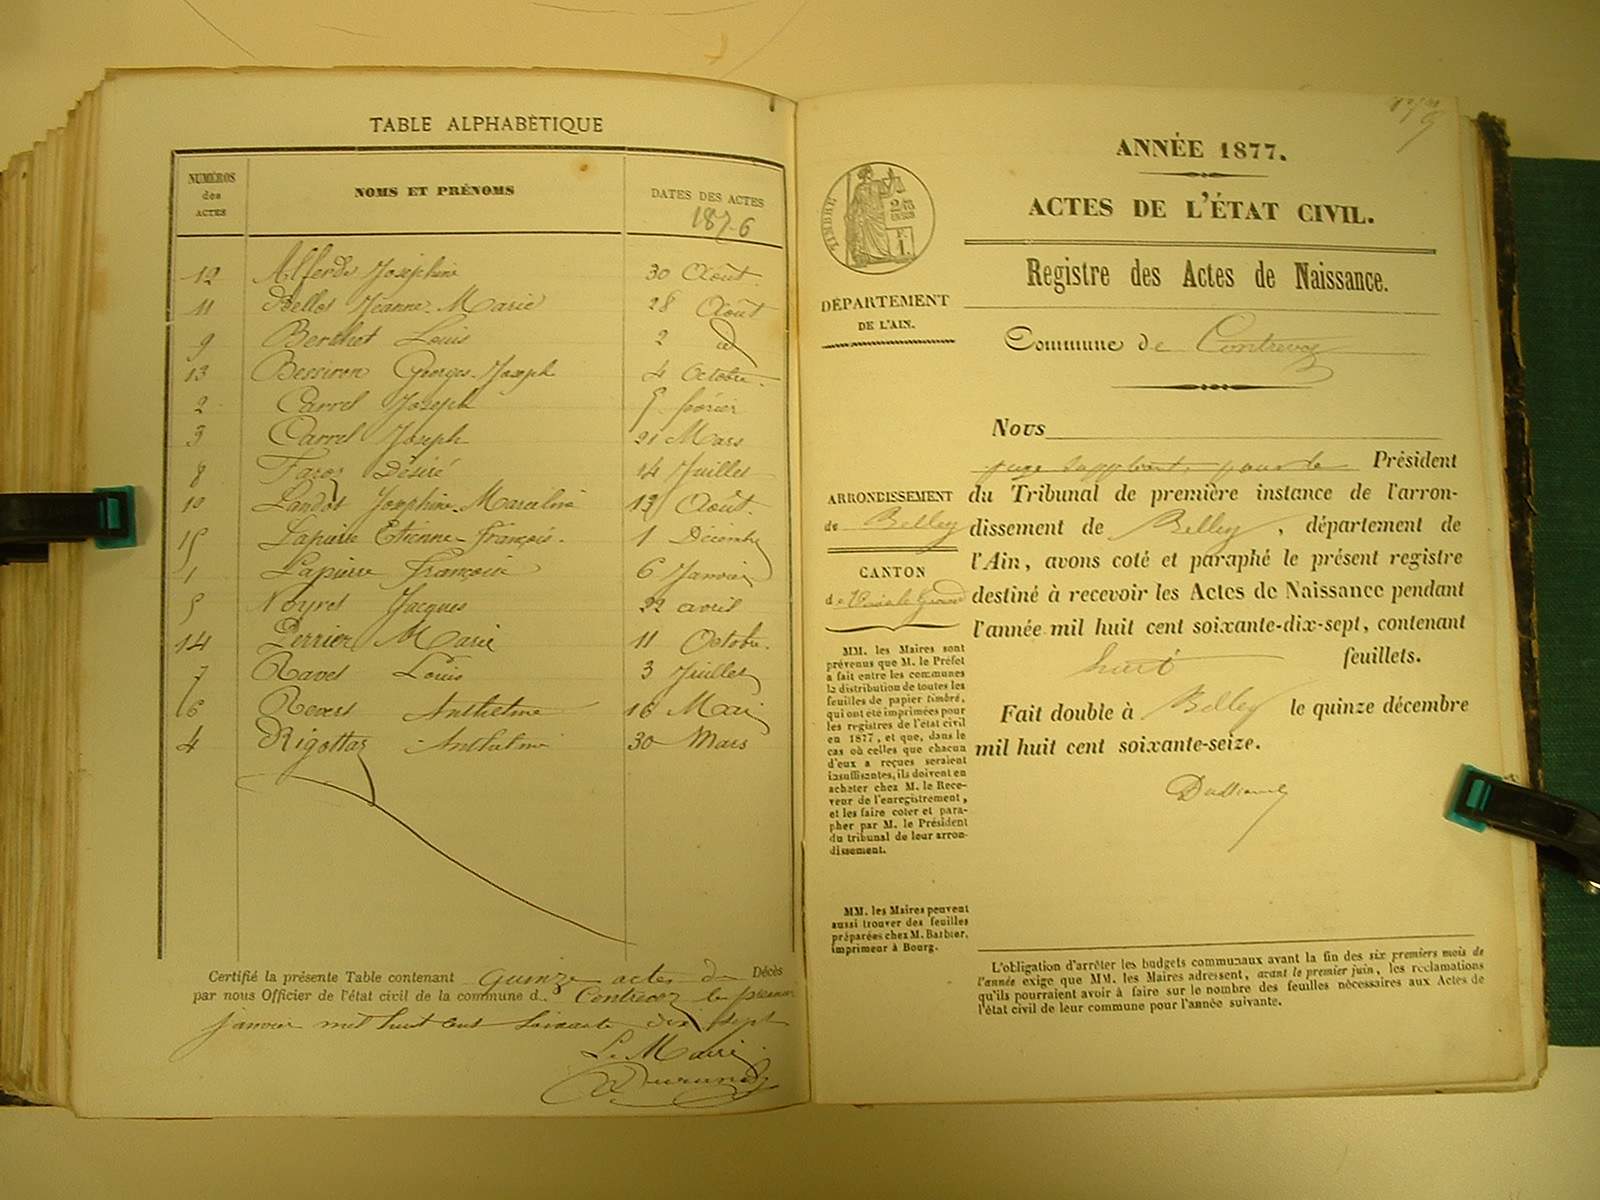 TABLE ALPHABÉTIQUE
NUMÉROS des ACTES
NOMS ET PRÉNOMS
DATES DES ACTES
1876
12 Josephine 30 Août
11 Bellot Jeanne-Marie 28 Août
9 Berthet Louis 2 id
13 Bessiron Georges-Joseph 4 Octobre
2 Carrel Joseph 5 février
3 Carrel Joseph 21 Mars
8 Désiré 14 Juillet
10 Landot Josephine-Marceline 13 Août
15 Lapierre Etienne-François 1 Décembre
1 Lapierre 6 Janvier
5 Noyret Jacques 22 avril
14 Perrier Marie 11 Octobre
7 Ravet Louis 3 Juillet
6 Revert Anthelme 16 Mai
4 Rigottaz Anthelme 30 Mars
Certifié la présente Table contenant quinze actes de Décès
par nous Officier de l'état civil de la commune d Contrevoz le premier
janvier mil huit cent soixante dix sept
Le Maire
Durand
ANNÉE 1877.
ACTES DE L'ÉTAT CIVIL.
Registre des Actes de Naissance.
Commune de Contrevoz
TIMBRE
DÉPARTEMENT
DE L'AIN.
ARRONDISSEMENT
de Belley
CANTON
de Virieu le Grand
MM. les Maires sont
prévenus que M. le Préfet
a fait entre les communes
la distribution de toutes les
feuilles de papier timbré,
qui ont été imprimées pour
les registres de l'état civil
en 1877, et que, dans le
cas où celles que chacun
d'eux a reçues seraient
insuffisantes, ils doivent en
acheter chez M. le Rece-
veur de l'enregistrement,
et les faire coter et para-
pher par M. le Président
du tribunal de leur arron-
dissement.
MM. les Maires peuvent
aussi trouver des feuilles
préparées chez M. Barbier,
imprimeur à Bourg.
Nous
juge suppléant, pour le Président
du Tribunal de première instance de l'arron-
dissement de Belley, département de
l'Ain, avons coté et paraphé le présent registre
destiné à recevoir les Actes de Naissance pendant
l'année mil huit cent soixante-dix-sept, contenant
huit feuillets.
Fait double à Belley le quinze décembre
mil huit cent soixante-seize.
L'obligation d'arrêter les budgets communaux avant la fin des six premiers mois de
l'année exige que MM. les Maires adressent, avant le premier juin, les réclamations
qu'ils pourraient avoir à faire sur le nombre des feuilles nécessaires aux Actes de
l'état civil de leur commune pour l'année suivante.